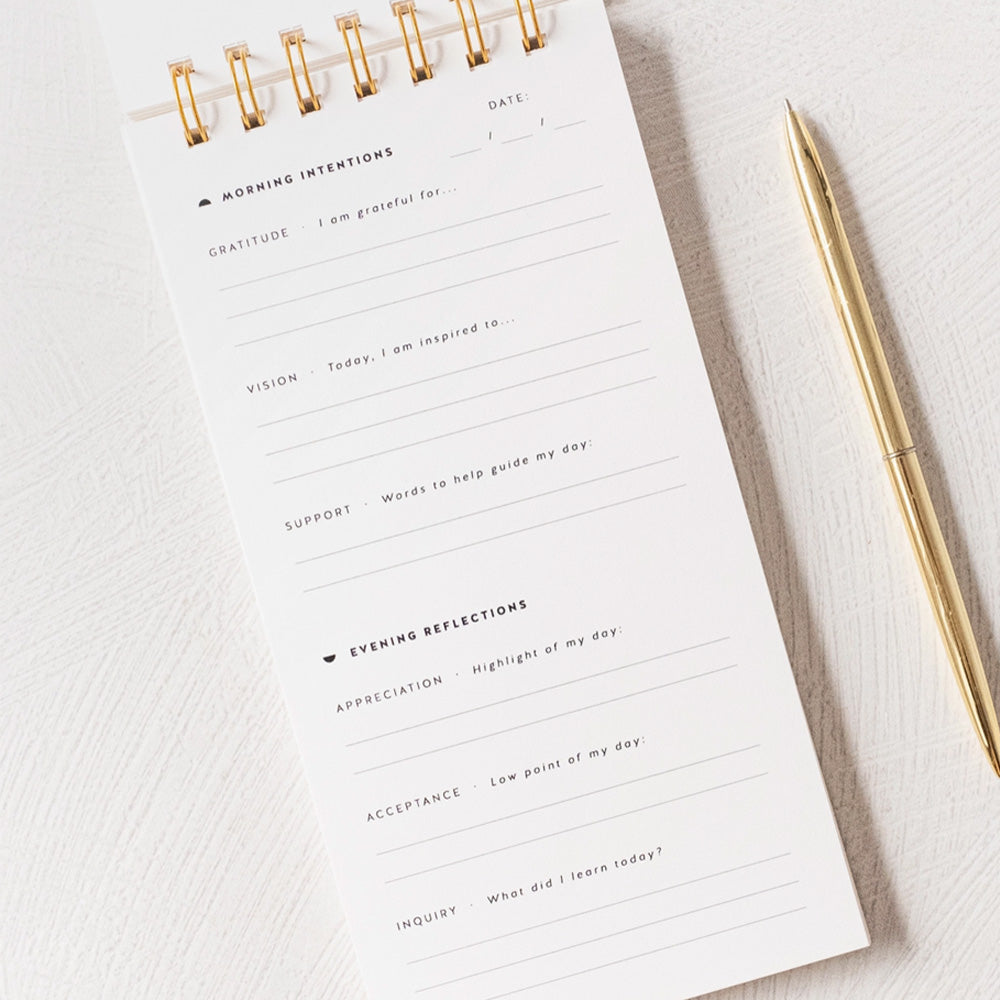 DATE:
/ /
MORNING INTENTIONS
GRATITUDE · I am grateful for...
VISION · Today, I am inspired to...
SUPPORT · Words to help guide my day:
EVENING REFLECTIONS
APPRECIATION · Highlight of my day:
ACCEPTANCE · Low point of my day:
INQUIRY · What did I learn today?